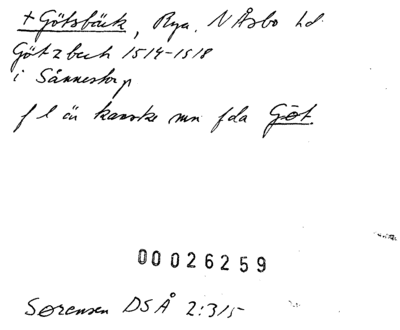 +Götsbäck, Rya. N Åsbo hd
Götzbech 1514-1518
i Sånnestorp
f l är kanske mn fda Göt.
00026259
Sørensen DSÅ 2:315